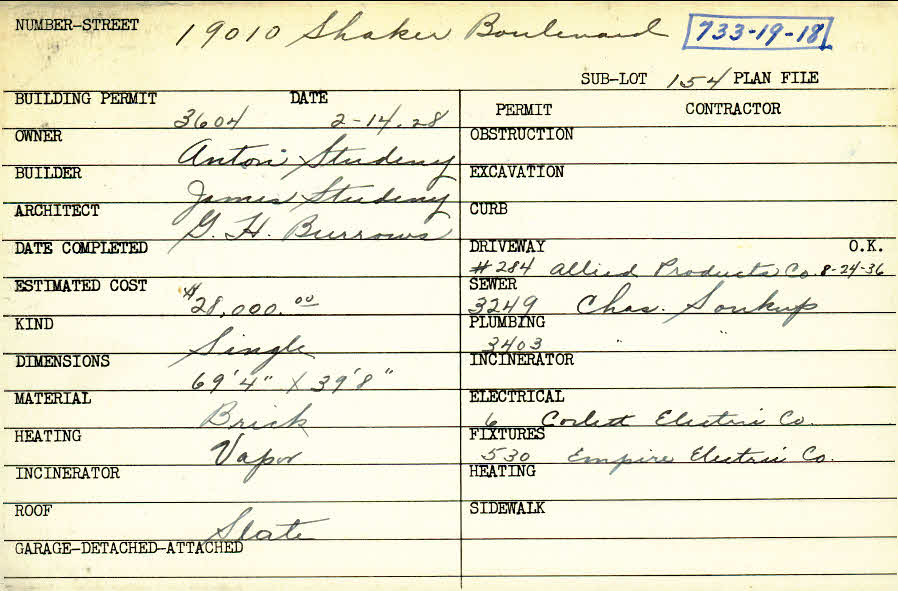 NUMBER-STREET 19010 Shaker Boulevard 733-19-18
SUB-LOT 154 PLAN FILE
BUILDING PERMIT 3604 DATE 2-14-28
OWNER Anton Studeny
BUILDER James Studeny
ARCHITECT G. H. Burrows
DATE COMPLETED
ESTIMATED COST $28,000.00
KIND Single
DIMENSIONS 69'4" X 39'8"
MATERIAL Brick
HEATING Vapor
INCINERATOR
ROOF Slate
GARAGE-DETACHED-ATTACHED
PERMIT CONTRACTOR
OBSTRUCTION
EXCAVATION
CURB
DRIVEWAY O.K.
#284 Allied Products Co. 8-24-36
SEWER
3249 Chas. Soukup
PLUMBING
3403 " "
INCINERATOR
ELECTRICAL
6 Corlett Electric Co.
FIXTURES
530 Empire Electric Co.
HEATING
SIDEWALK